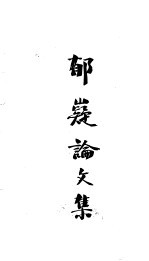 郁嶷論文集